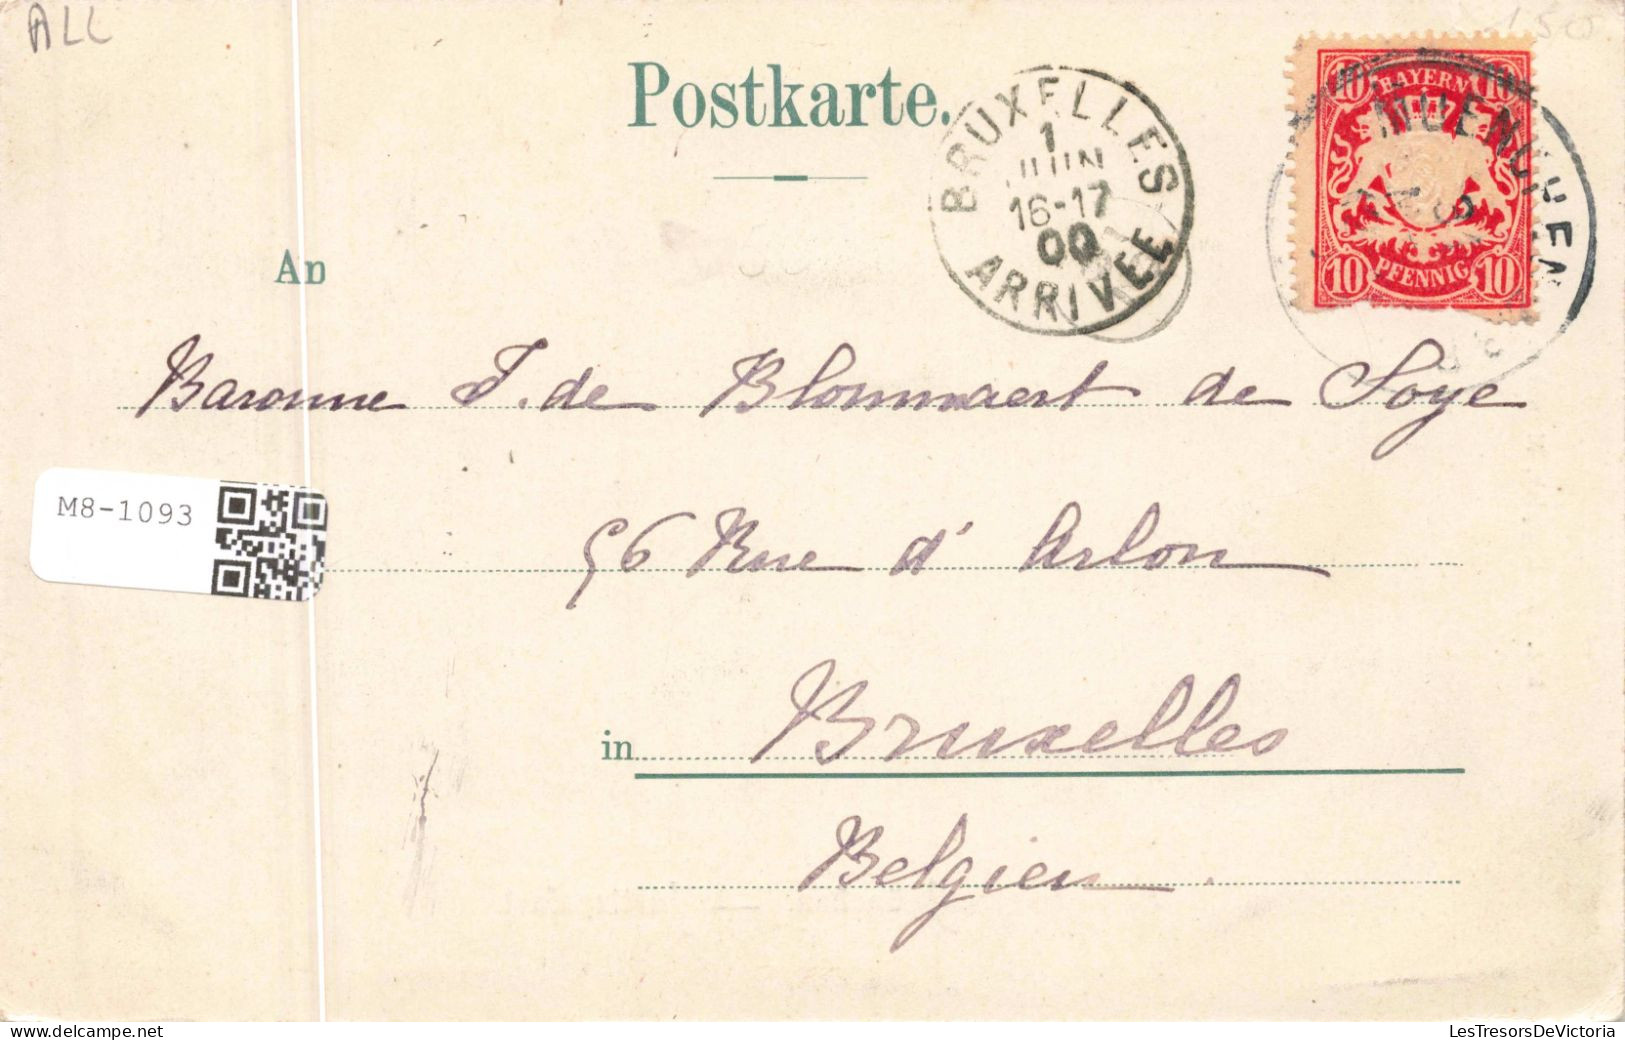 ALL
150
Postkarte.
BRUXELLES
1
JUIN
16-17
00
ARRIVEE
10 BAYERN 10
MUENCHEN
10 PFENNIG 10
An
Baronne J. de Blommaert de Soye
M8-1093
56 Rue d'Arlon
in Bruxelles
Belgien.
LesTresorsDeVictoria
delcampe.net